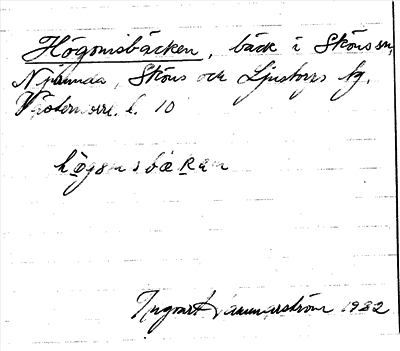 Högomsbäcken, bäck i Sköns sn,
Njurunda, Sköns och Ljustorps tg.
Västernorrl. l. 10
högomsbäkän
Ingvart Hammarström 1932